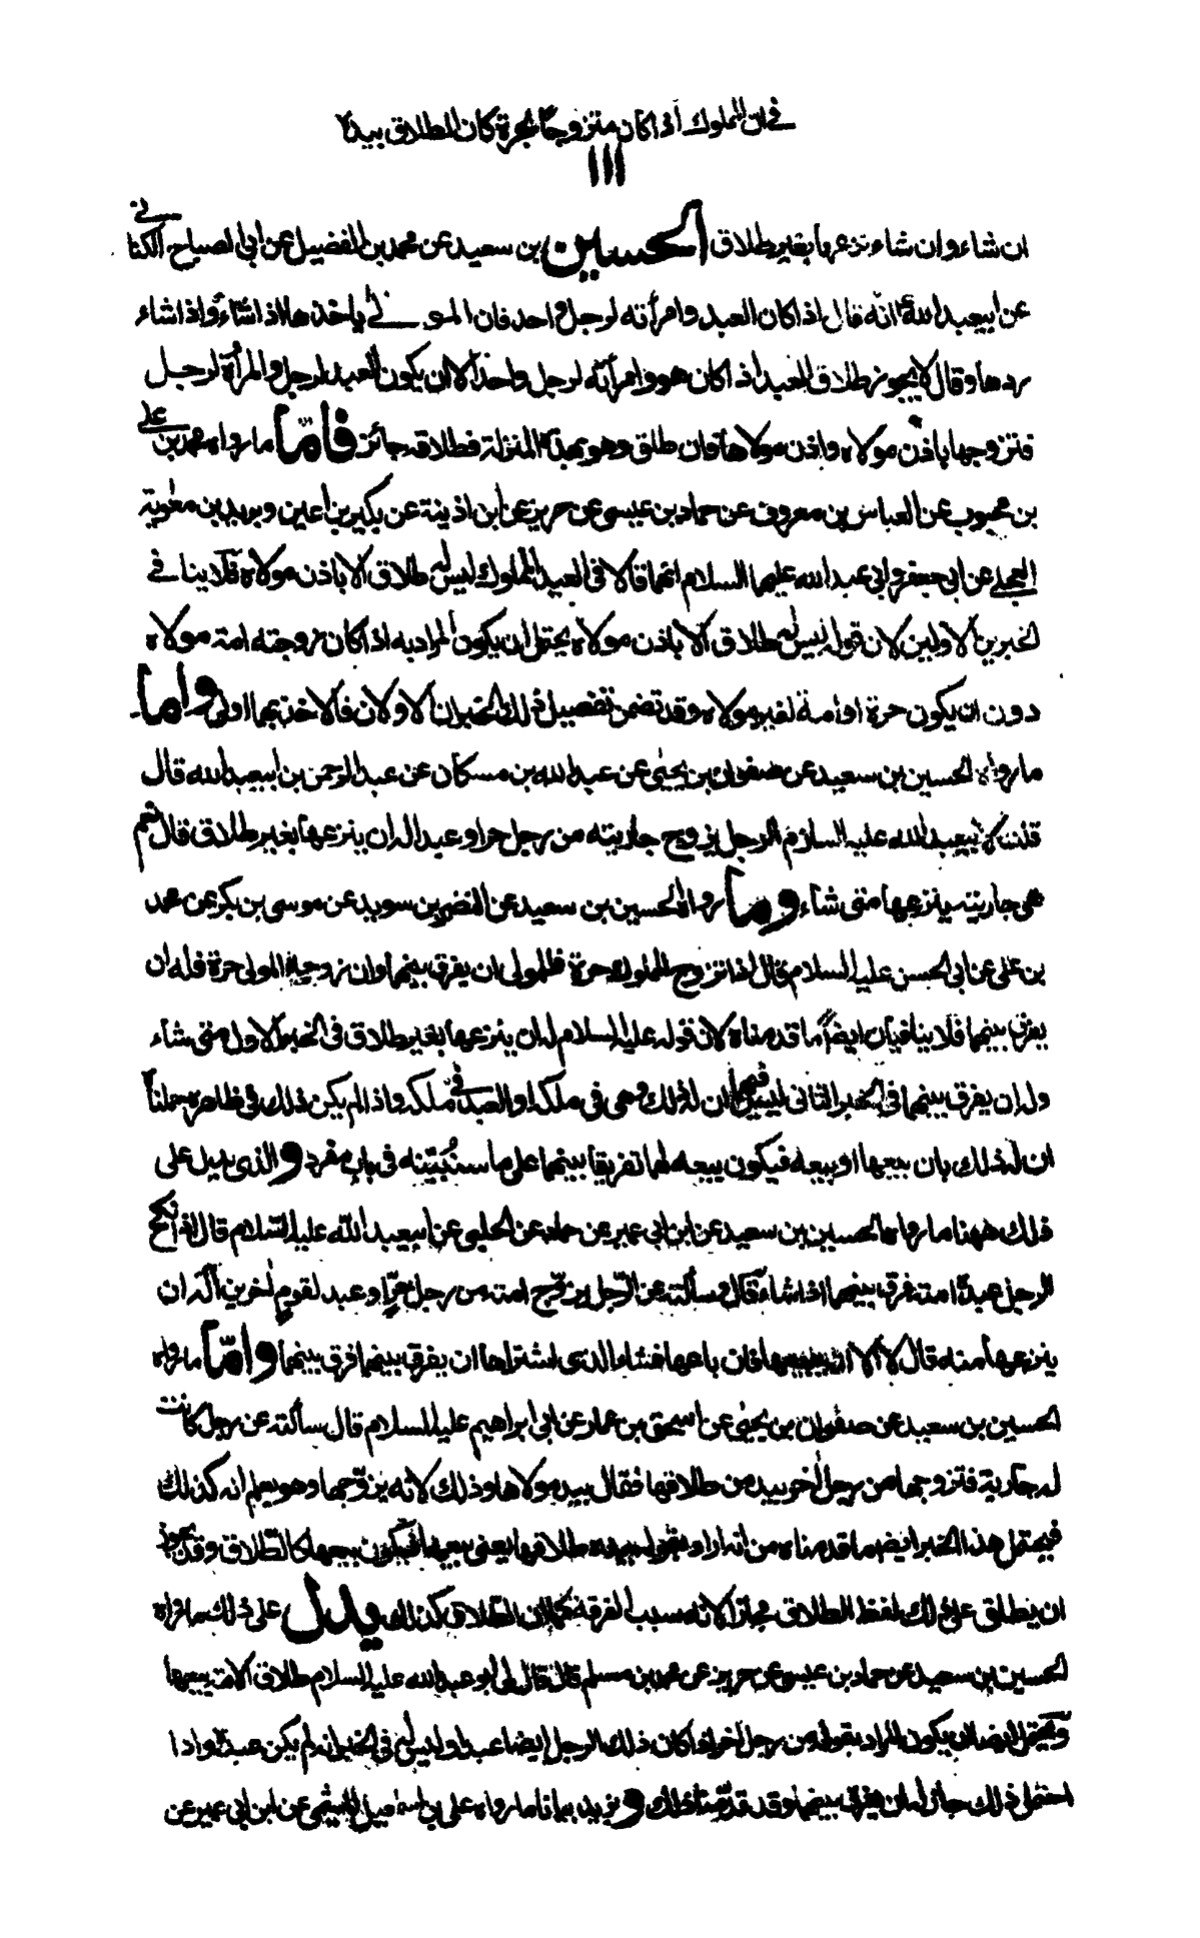 في ان المملوك اذا كان متزوجا بحرة كان الطلاق بيده
١١١
ان شاء وان شاء نزعها بغير طلاق الحسين بن سعيد عن محمد بن الفضيل عن ابي الصباح الكناني
عن ابيعبدالله ع انه قال اذا كان العبد وامرأته لرجل واحد فان المولى ياخذها اذا شاء واذا شاء
ردها وقال لا يجوز طلاق العبد اذا كان هو وامرأته لرجل واحد الا ان يكون العبد لرجل والمرأة لرجل
فتزوجها باذن مولاه واذن مولاها فان طلق وهو بهذه المنزلة فطلاقه جائز فامّا ما رواه محمد بن علي
بن محبوب عن العباس بن معروف عن حماد بن عيسى عن حريز عن ابن اذينة عن بكير بن اعين وبريد بن معوية
العجلي عن ابي جعفر وابي عبد الله عليهما السلام انهما قالا في العبد المملوك ليس له طلاق الا باذن مولاه فلا ينافي
الخبرين الاولين لان قوله ليس له طلاق الا باذن مولاه يحتمل ان يكون المراد به اذا كان زوجته امة مولاه
دون ان يكون حرة او امة لغير مولاه وقد تضمن تفصيل ذلك الخبران الاولان فالاخذ بهما اولى واما
ما رواه الحسين بن سعيد عن صفوان بن يحيى عن عبد الله بن مسكان عن عبد الرحمن بن ابيعبدالله قال
قلت لابيعبدالله عليه السلام الرجل يزوج جاريته من رجل حر او عبد اله ان ينزعها بغير طلاق قال نعم
هي جاريته ينزعها متى شاء وما رواه الحسين بن سعيد عن النضر بن سويد عن موسى بن بكر عن محمد
بن علي عن ابي الحسن عليه السلام قال اذا تزوج المملوك حرة فللمولى ان يفرق بينهما وان زوجه المولى حرة فله ان
يفرق بينهما فلا ينافيان ايضًا ما قدمناه لان قوله عليه السلام له ان ينزعها بغير طلاق في الخبر الاول متى شاء
وله ان يفرق بينهما في الخبر الثاني ليس فيهما ان له ذلك وهي في ملكه او العبد في ملكه واذا لم يكن ذلك في ظاهره حملناه
ان له ذلك بان يبيعها او يبيعه فيكون بيعه لهما تفريقا بينهما على ما سنُبيّنه في باب مفرد والذي يدل على
ذلك ههنا ما رواه الحسين بن سعيد عن ابن ابي عمير عن حماد عن الحلبي عن ابيعبد الله عليه السلام قال اذا انكح
الرجل عبده امته فرق بينهما اذا شاء قال وسألته عن الرّجل يزوّج امته من رجل حرّ او عبد لقوم اخرين اله ان
ينزعها منه قال لا الا ان يبيعها فان باعها فشاء الذي اشتراها ان يفرق بينهما فرق بينهما وامّا ما رواه
الحسين بن سعيد عن صفوان بن يحيى عن اسحق بن عمار عن ابي ابراهيم عليه السلام قال سألته عن رجل كانت
له جارية فتزوجها من رجل اخر بيد من طلاقها فقال بيد مولاها وذلك لانه يزوّجها وهو يعلم انه كذلك
فيحتمل هذا الخبر ايضا ما قدمناه من انه اراد بقوله بيده طلاقها يعني بيعها فيكون بيعها كالطّلاق وقد يجوز
ان يطلق على ذلك لفظ الطلاق مجازا لانه سبب الفرقة كما ان الطّلاق كذلك يدل على ذلك ما رواه
الحسين بن سعيد عن حماد بن عيسى عن حريز عن محمد بن مسلم قال قال لي ابو عبدالله عليه السلام طلاق الامة بيعها
ويحتمل ايضا ان يكون المراد بقوله من رجل اخر اذا كان ذلك الرجل ايضا عبده وليس في الخبر انه لم يكن عبده واذا
احتمل ذلك جاز له ان يفرق بينهما وقد قدّمنا ذلك ويزيده بيانا ما رواه علي بن اسماعيل الميثمي عن ابن ابي عمير عن